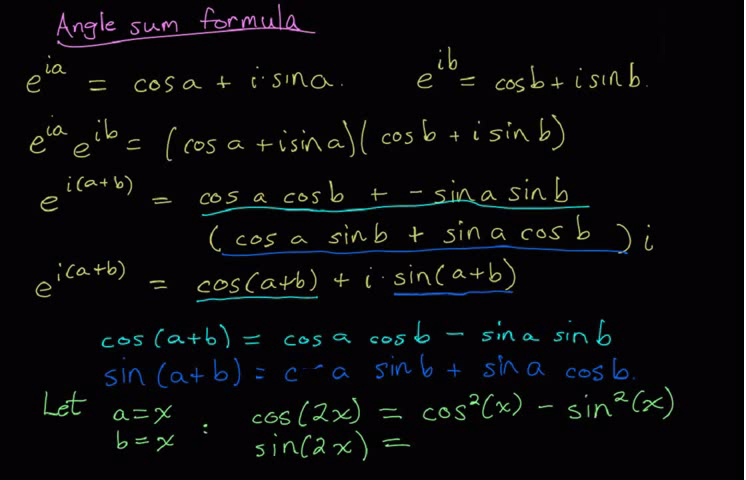 Angle sum formula
e^{ia} = cos a + i · sin a. e^{ib} = cos b + i sin b.
e^{ia} e^{ib} = (cos a + i sin a)(cos b + i sin b)
e^{i(a+b)} = cos a cos b + - sin a sin b
(cos a sin b + sin a cos b) i
e^{i(a+b)} = cos(a+b) + i · sin(a+b)
cos(a+b) = cos a cos b - sin a sin b
sin(a+b) = a sin b + sin a cos b.
Let a = x : cos(2x) = cos²(x) - sin²(x)
b = x sin(2x) =